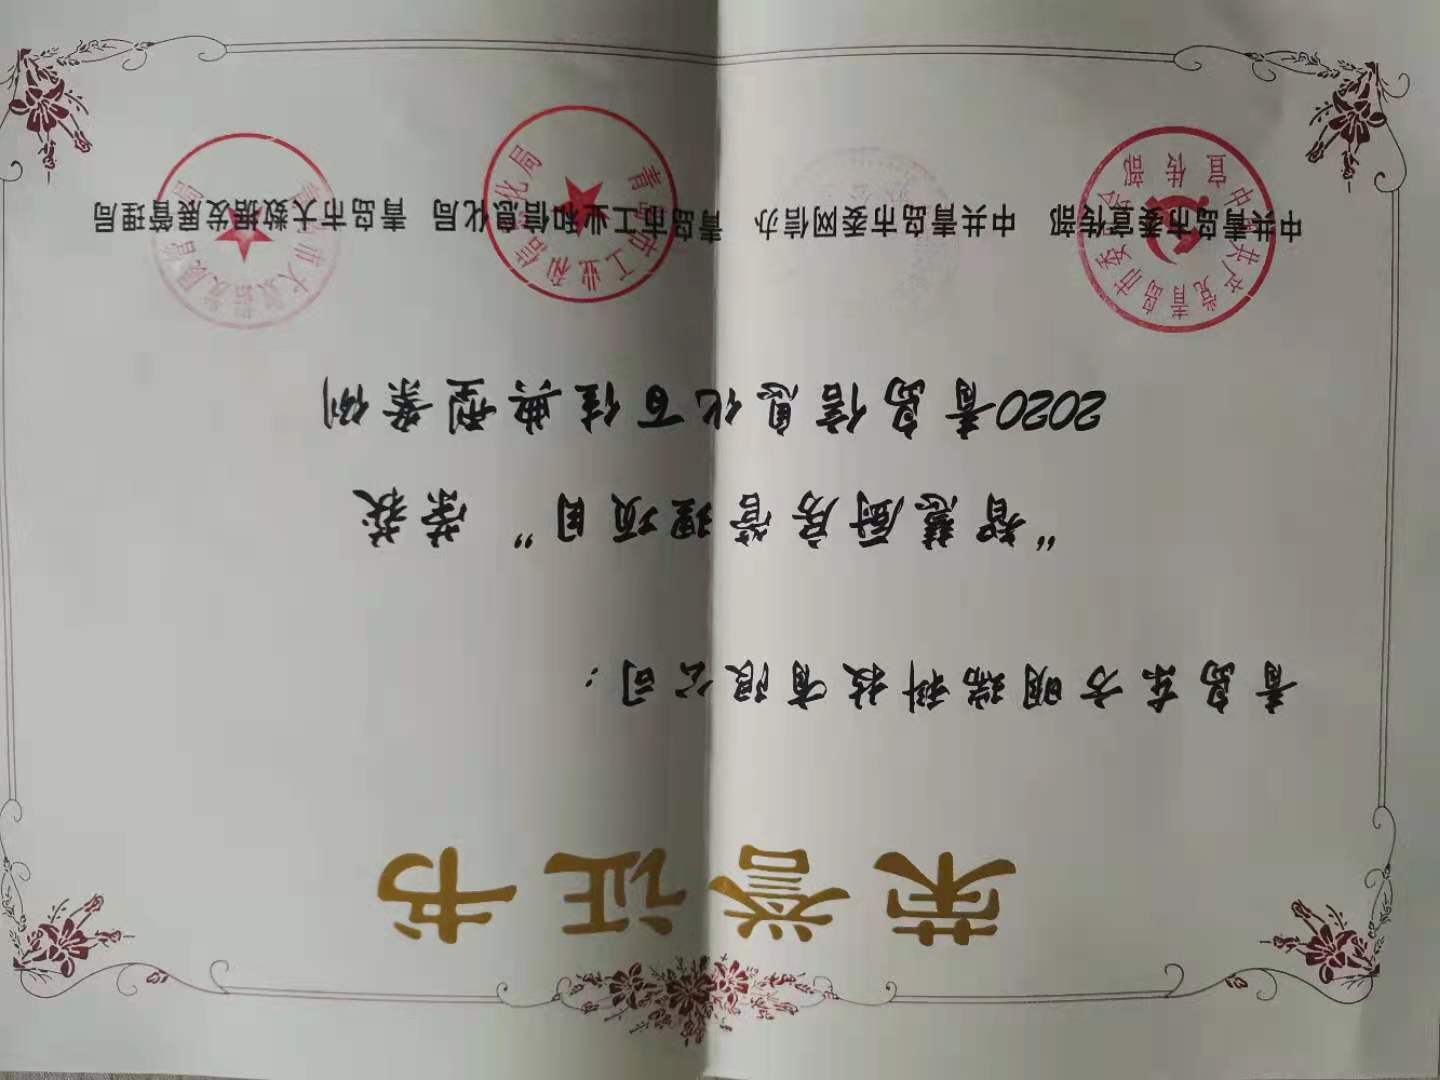 荣誉证书
青岛东方明瑞科技有限公司：
“智慧厨房管理项目” 荣获
2020青岛信息化百佳典型案例
中共青岛市委宣传部 中共青岛市委网信办 青岛市工业和信息化局 青岛市大数据发展管理局
中国共产党青岛市委员会
宣传部
青岛市工业和信息化局
青岛市大数据发展管理局